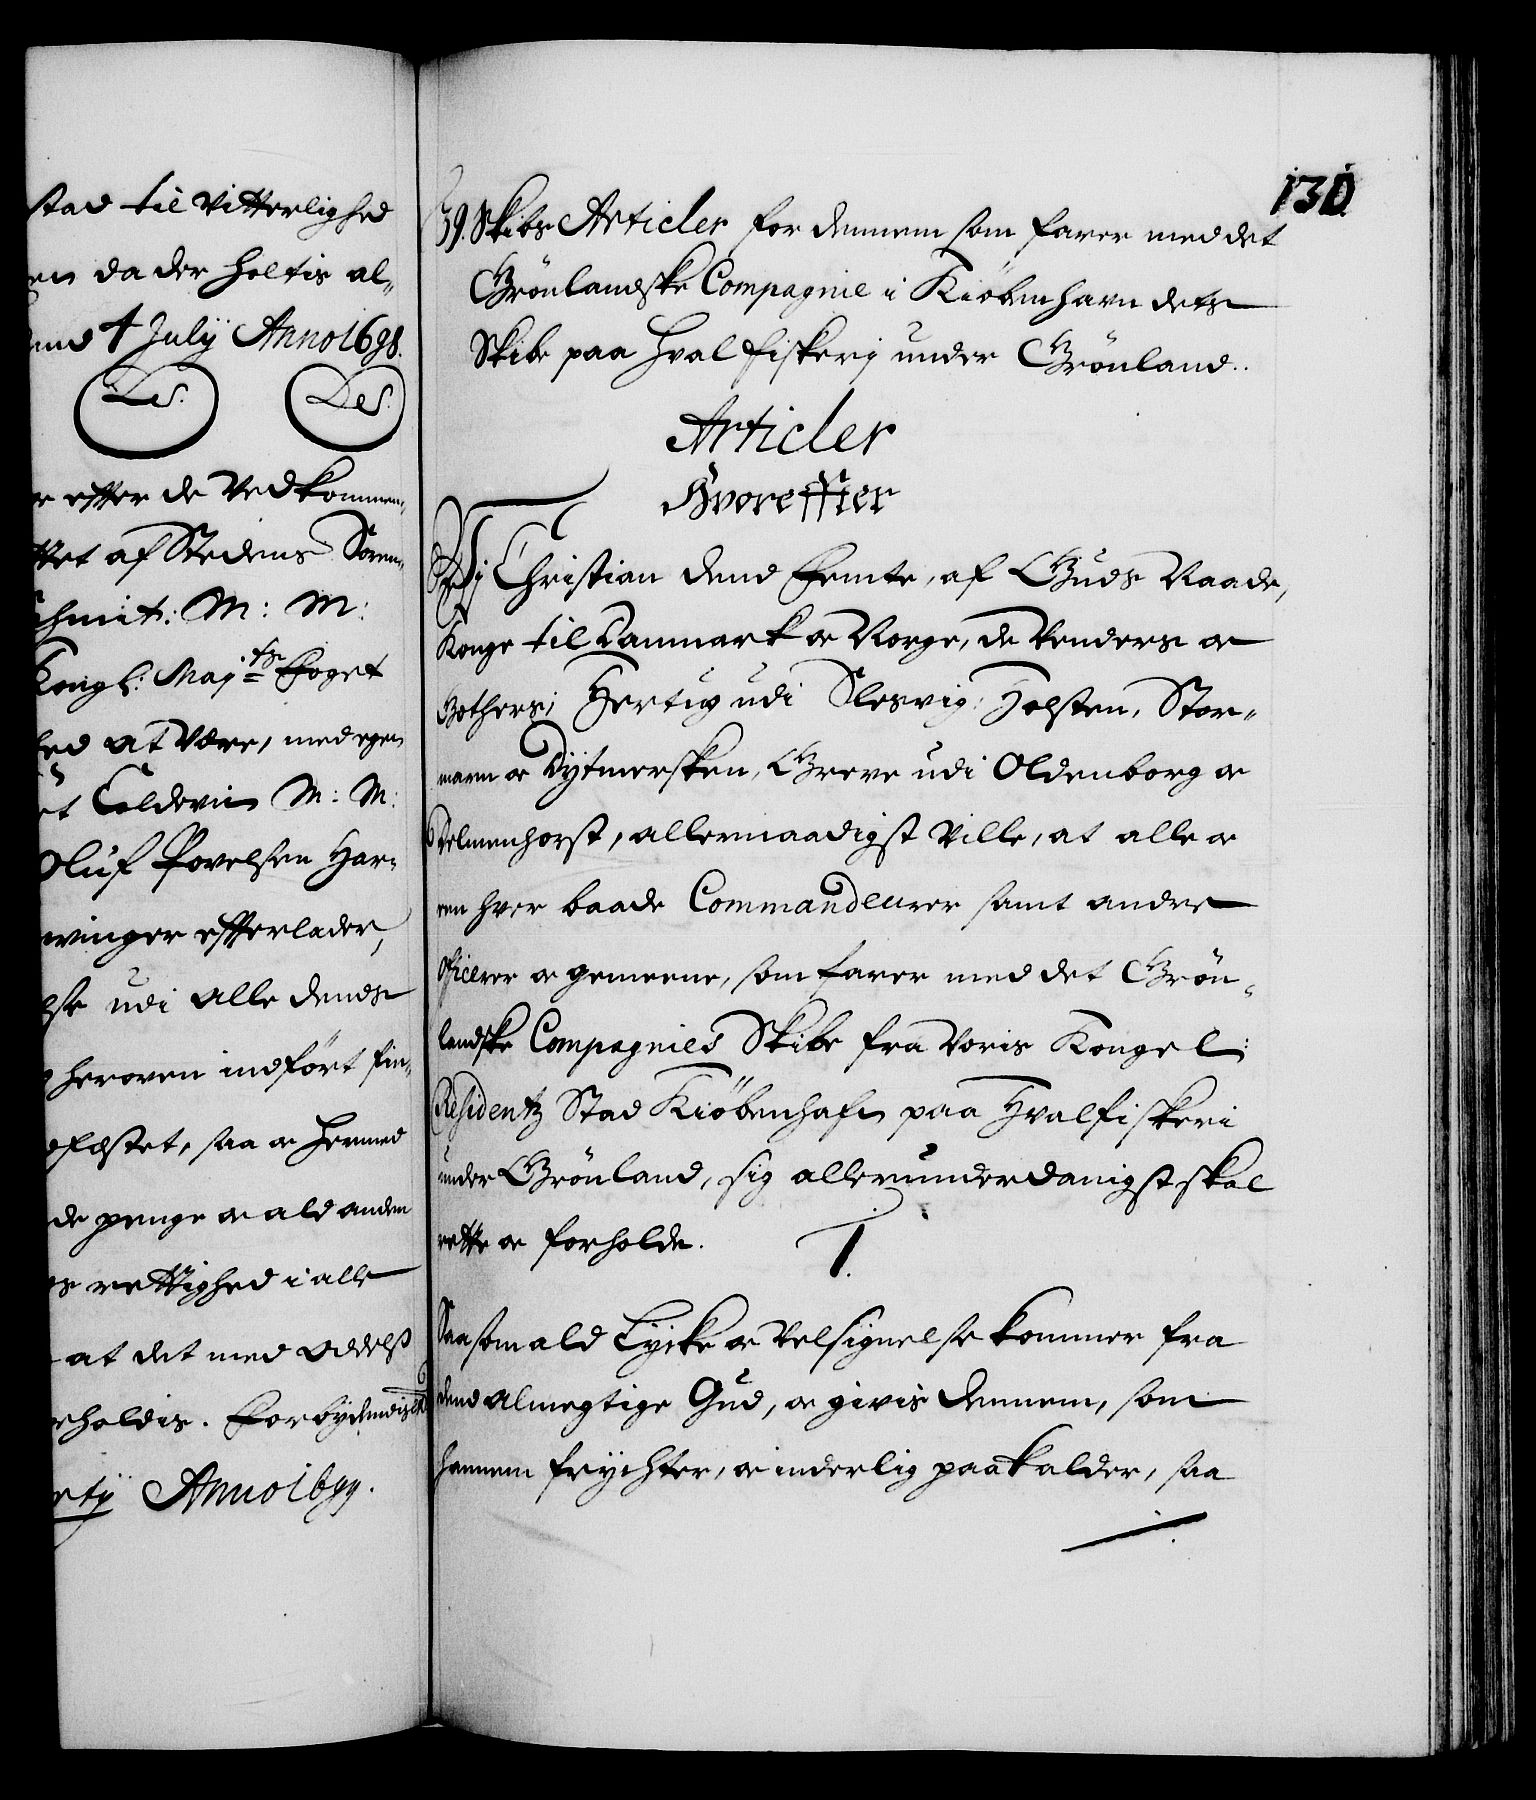 stad til Vitterlighed
en da der holtis al„
end 4 July Anno 1698.
L.S. L.S.
er effter de Vedkommen„
ttet af Stedens Soren„
Schmit: M: M:
Kongl: Maj:ts Foget
hed at Være, med egen
et Coldevin M: M:
Oluf Povelsen Har„
winger effterlader,
lse udi alle dends
g heroven indført fin„
dfæstet, saa og hermed
de penge og ald anden
es rettighed i alle
at det med odelß
rholdis. Forbydendis
Anno 1699.
130
39. Skibs Articler for dennem som farer med det
Grönlandske Compagnie i Kiöbenhavn dets
Skibe paa Hval fiskerj under Grönland..
Articler
Hvoreffter
Vj Christian dend Femte, af Guds Naade,
Konge til Danmark og Norge, de Venders og
Gothers, Hertug udi Slesvig, Holsten, Stor„
marn og Dytmersken, Greve udi Oldenborg og
Delmenhorst, allernaadigst Ville, at alle og
en hver baade Commandeurer samt andre
Oficerer og gemeene, som farer med det Grön„
landske Compagnies Skibe fra Voris Kongel:
Residentz Stad Kiöbenhafn paa Hvalfiskeri
under Grönland, sig allerunderdanigst skal
rette og forholde.
1.
Saasom ald Lycke og Velsignelse kommer fra
dend Almegtige Gud, og givis dennem, som
hannem frychter, og inderlig paakalder, saa